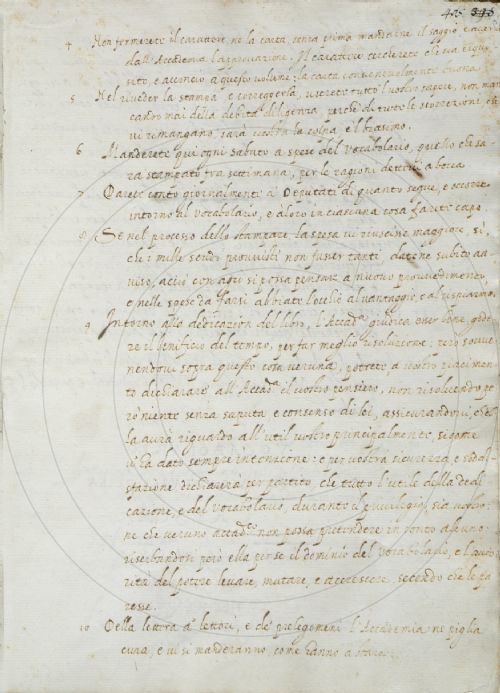 475 345
4 Non fermerete il carattere, ne la carta senza prima mandarne il saggio, e averne
dall'Accademia l'approvazione. Il carattere cercherete che sia
sito, e acconcio a questo volume: la carta buona
5 Nel riveder la stampa e correggerla, userete tutto vostro sapere, non man
cando mai della debita diligenza, perche di tutte le scorrezioni che
vi rimangano sarà vostra la colpa e 'l biasimo.
6 Manderete qui ogni sabato a spese del Vocabolario, quello che sa-
rà stampato fra settimana, per le ragioni dettevi a bocca
7 Darete conto giornalmente a Deputati di quanto segue, e occorre
intorno al vocabolario, e a loro in ciascuna cosa farete capo.
8 Se nel processo dello stampare la spesa vi riuscisse maggiore, sì,
che i mille scudi provvisti non fusser tanti, datene subito av-
viso, acciò con agio si possa pensare a nuovo provvedimento,
e nelle spese da farsi abbiate l'occhio al vantaggio, e al risparmio.
9 Intorno alla dedicazion del libro, l'Accad.a giudica esser bene, gode
re il benificio del tempo, per far meglio risoluzione: però sovve-
nendovi sopra questo cosa veruna, potrete a vostro piacimen-
to dichiarare all'Accad.a il vostro pensiero, non risolvendo pe-
rò niente senza saputa e consenso di lei, assicurandovi, ch'el
la aurà riguardo all'util vostro principalmente sicome
v'ha dato sempre intenzione: e per vostra sicurezza e sodis-
fazione dichiarerà per partito, che tutto l'utile della dedi
cazione, e del vocabolario, durante il privilegio, sia vostro:
ne che veruno accad.co non possa pretendere in conto alcuno:
riserbandosi però ella per se il dominio del vocabolario, e l'auto
rità del potere levare, mutare, e accrescere, secondo che le pa
resse.
10 Della lettera a' lettori, e de' prolegomeni l'Accademia ne piglia
cura, e vi si manderanno, come hanno a stare.